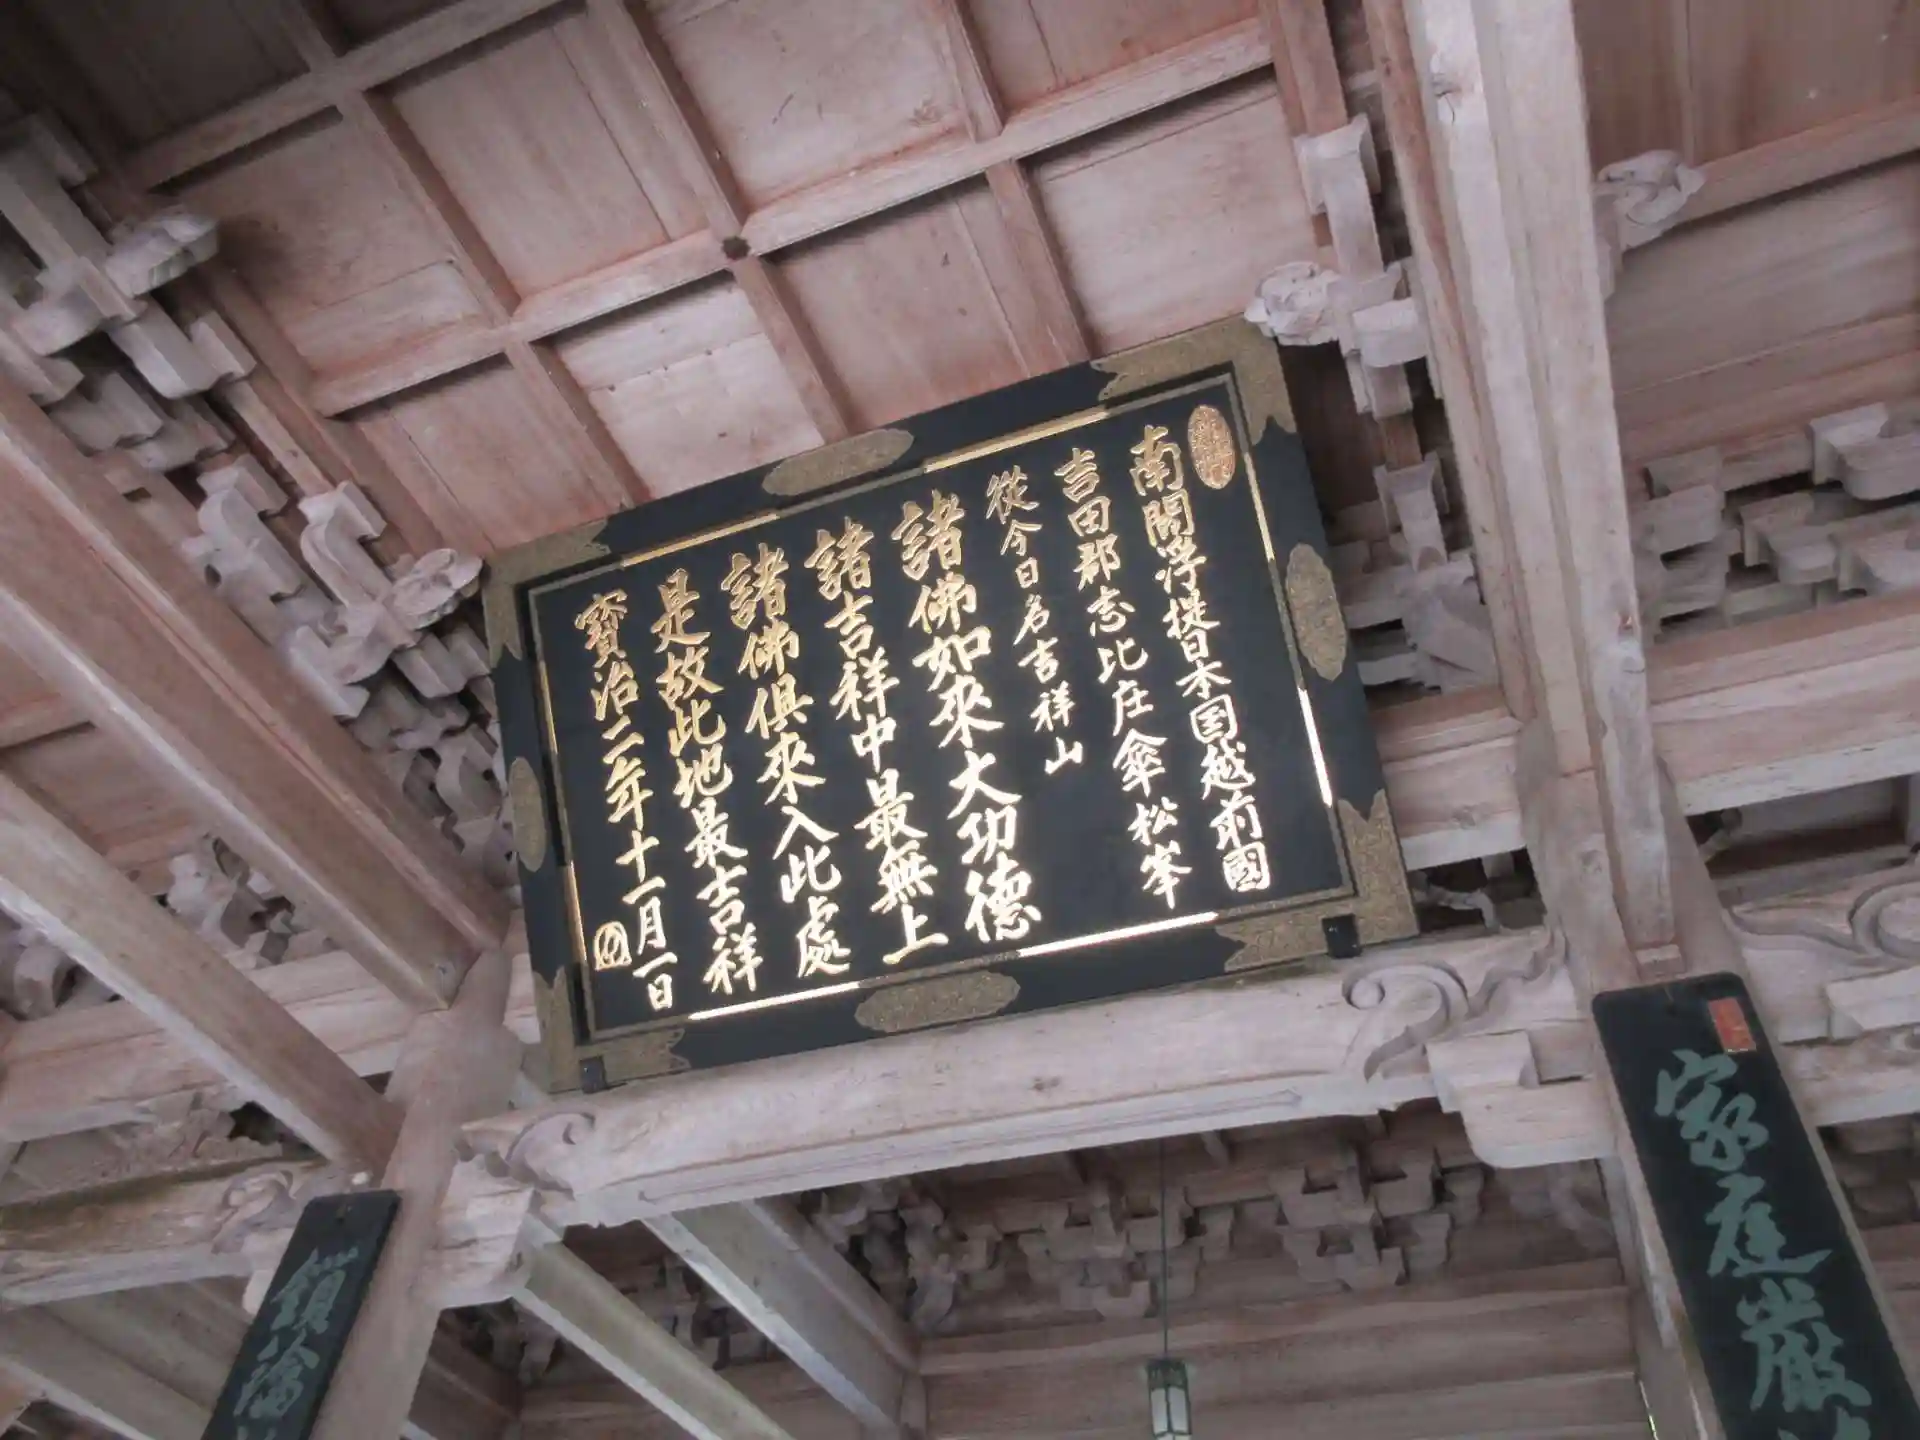 南閻浮提日本国越前國
吉田郡志比庄傘松峯
從今日名吉祥山
諸佛如來大功德
諸吉祥中最無上
諸佛俱來入此處
是故此地最吉祥
寳治二年十一月一日
家庭嚴
鎖